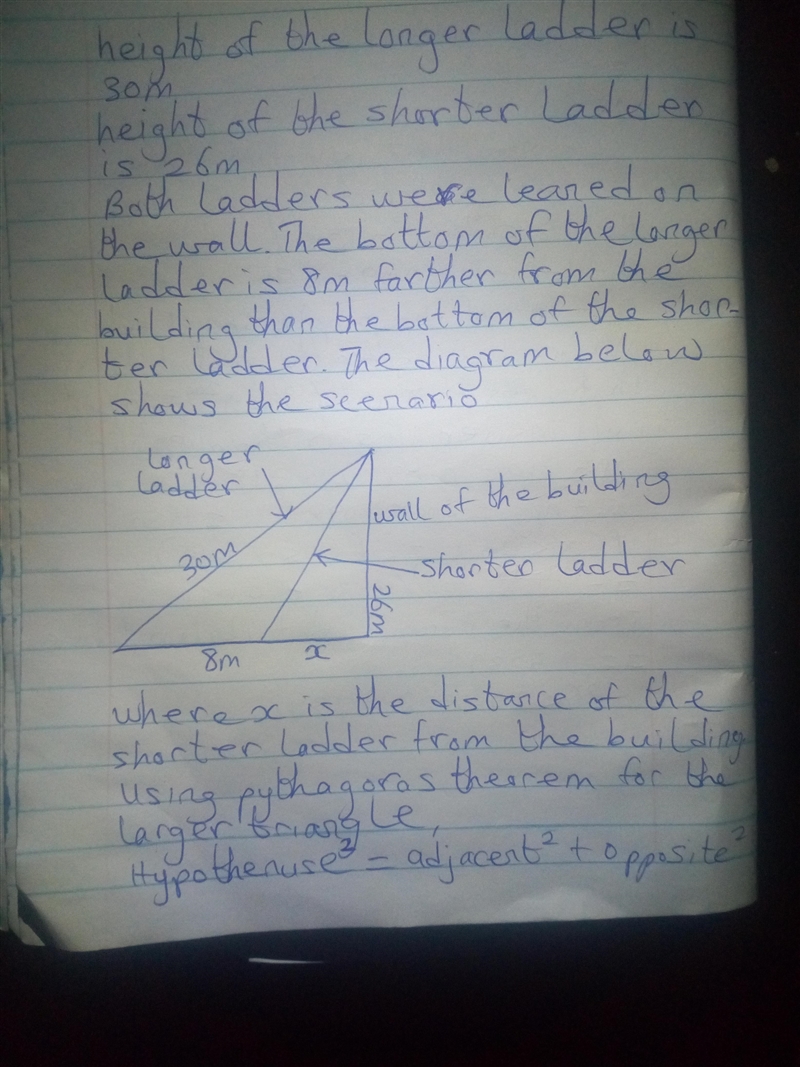 height of the longer ladder is
30m
height of the shorter ladder
is 26m
Both ladders were leaned on
the wall. The bottom of the longer
ladder is 8m farther from the
building than the bottom of the shor-
ter ladder. The diagram below
shows the scenario
longer
ladder
wall of the building
30m
shorter ladder
26m
8m
x
where x is the distance of the
shorter ladder from the building
using pythagoras theorem for the
larger triangle,
Hypothenuse² = adjacent² + opposite²